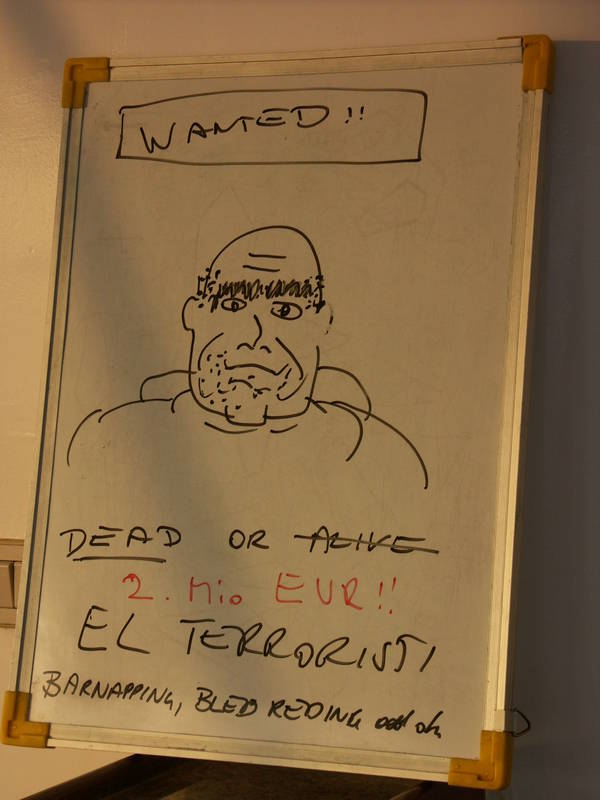 WANTED!!
DEAD OR ALIVE
2. Mio EUR!!
EL TERRORISTI
BARNAPPING,